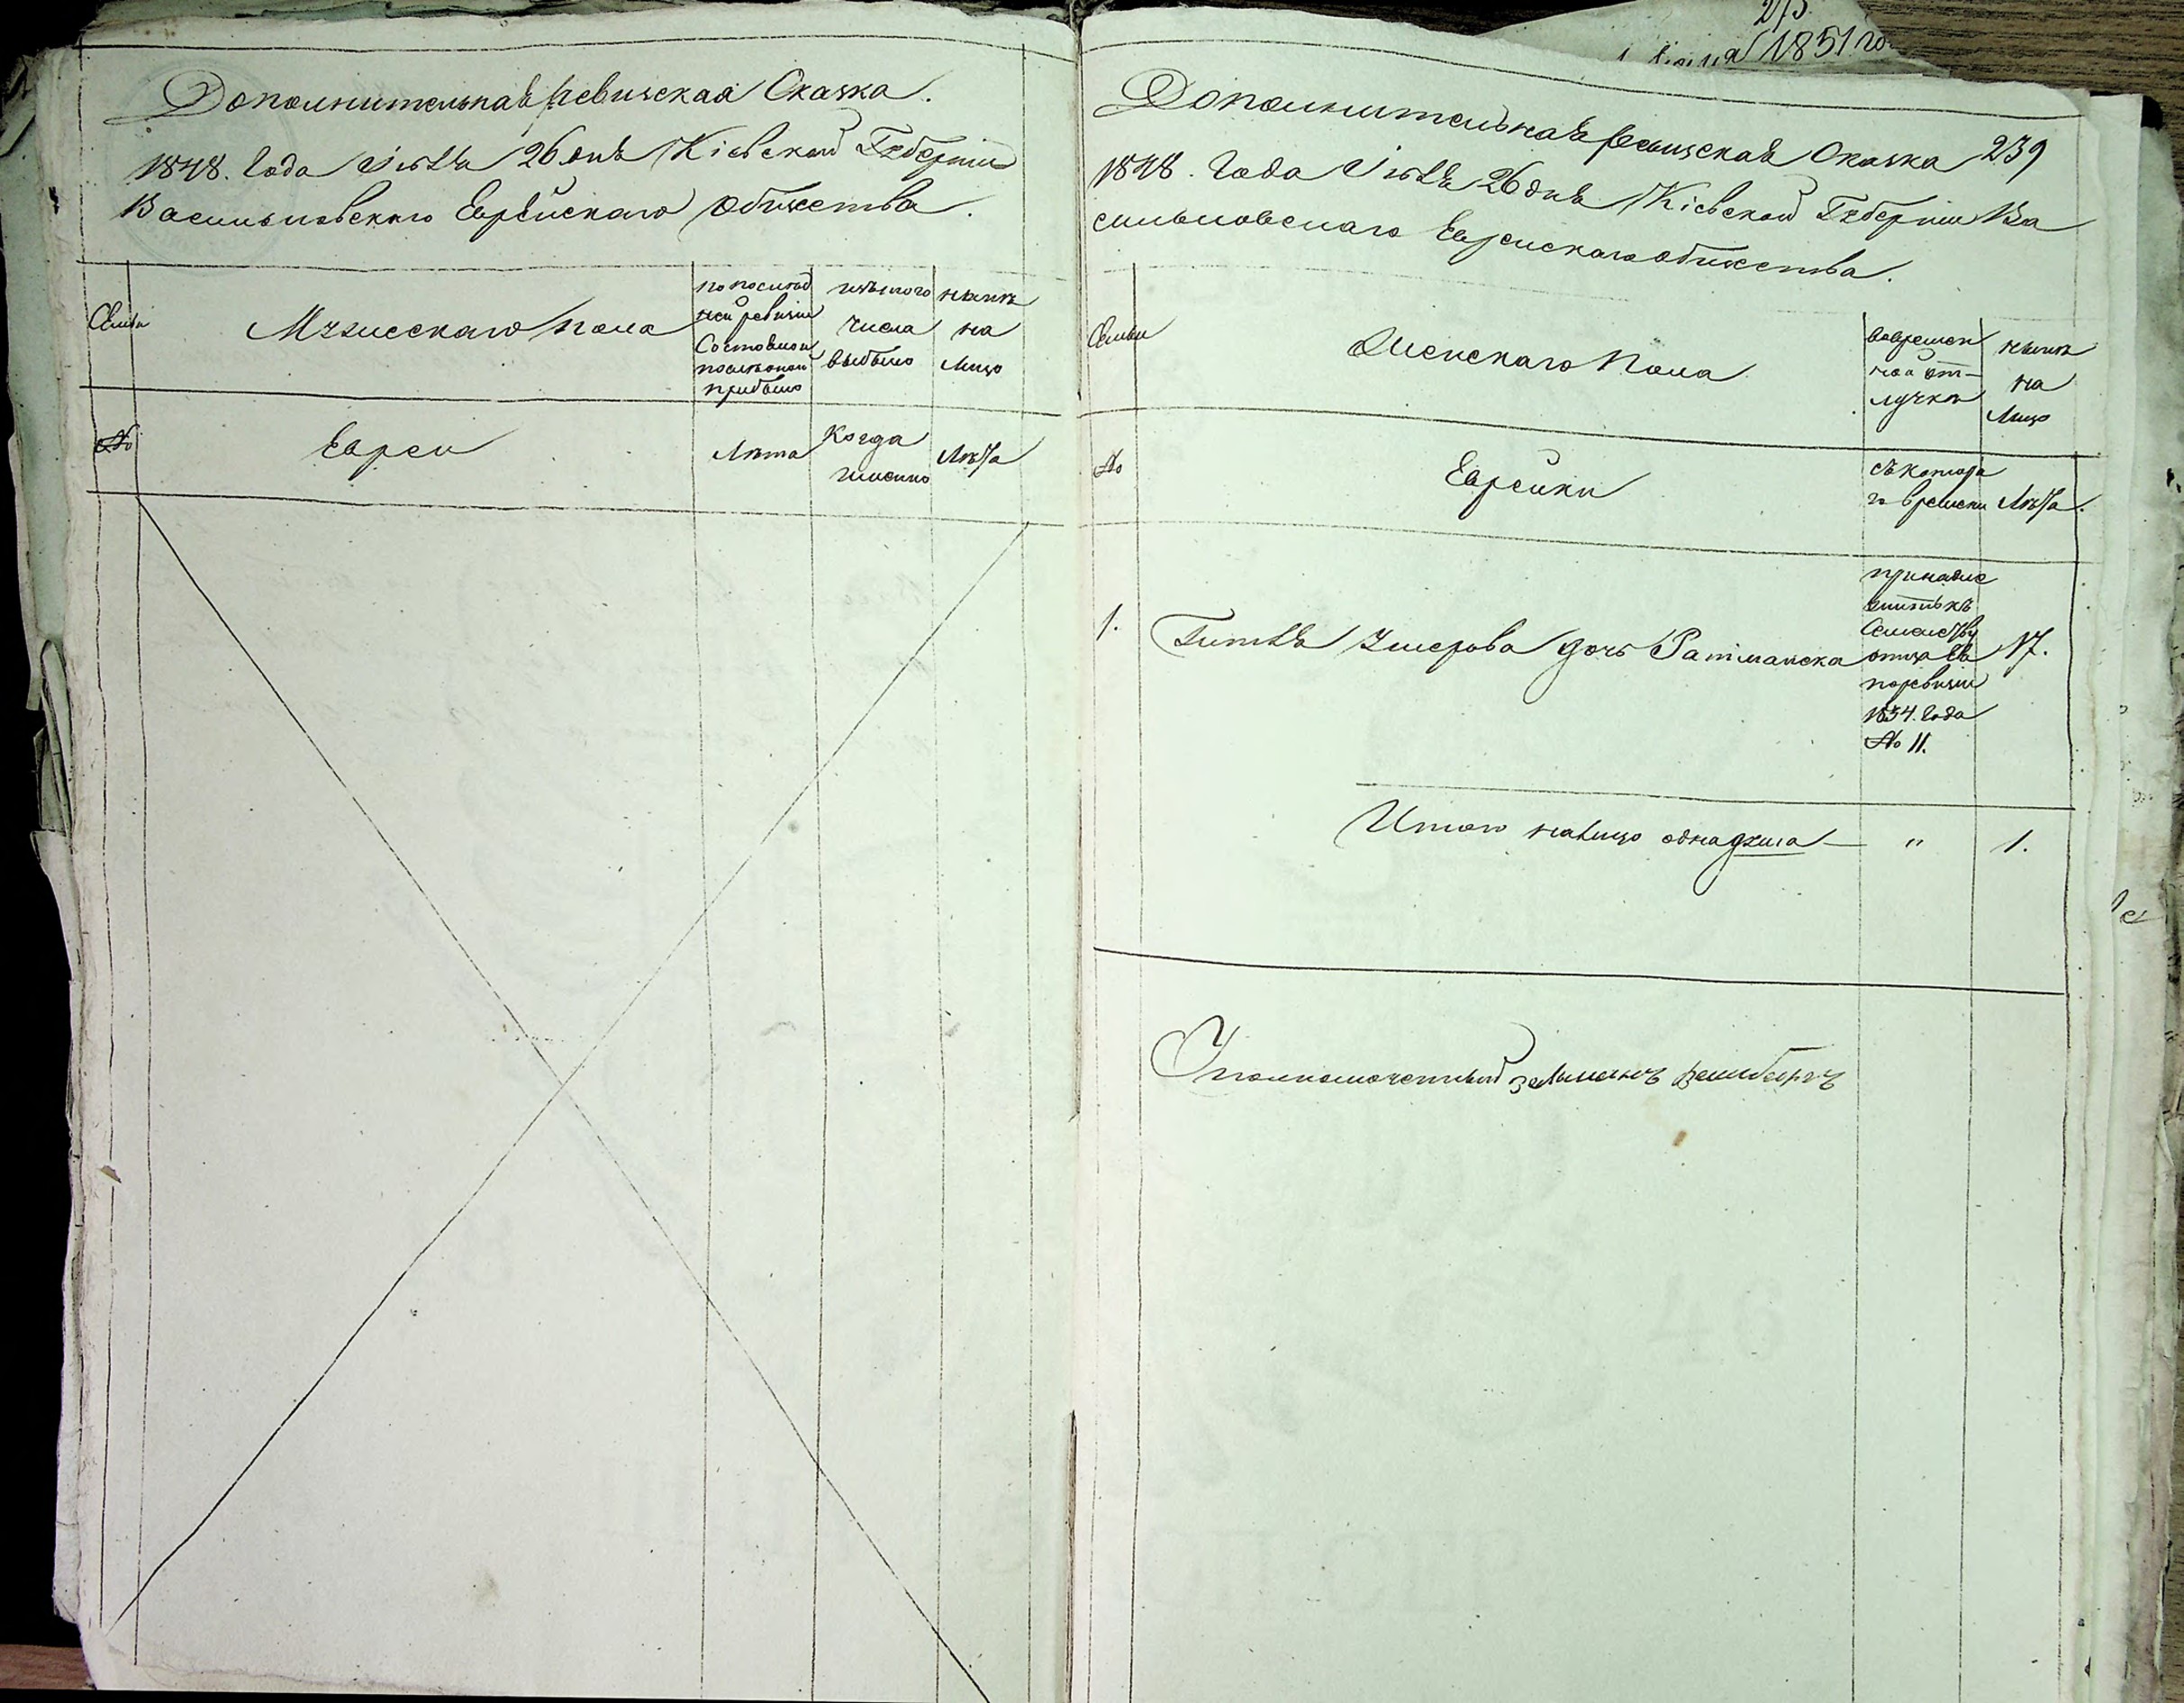 Дополнительная ревизская Сказка.
1848. Года Іюля 26 дня Кіевской Губерніи
Васильковскаго Еврейскаго Общества.
Семьи
Мужескаго пола
по послед
ней ревизіи
Состояло и
после оной
прибыло
изъ того
числа
выбыло
ныне
на
Лицо
№
Евреи
Лета
Когда
именно
Лета
1851 го
Дополнительная ревизская Сказка 239
1848. Года Іюля 26 дня Кіевской Губерніи Ва
сильковскаго Еврейскаго общества.
Семьи
Женскаго Пола
Вовремен
ной от-
лучке
ныне
на
Лицо
№
Еврейки
съ котора
го времени
Лета.
1. Гитля Умерова дочь Ратманска 17.
принадле
житъ къ
Семейству
отца Ея
по ревизіи
1834. Года
№ 11.
Итого налицо одна душа — " 1.
Уполномоченный Залманъ